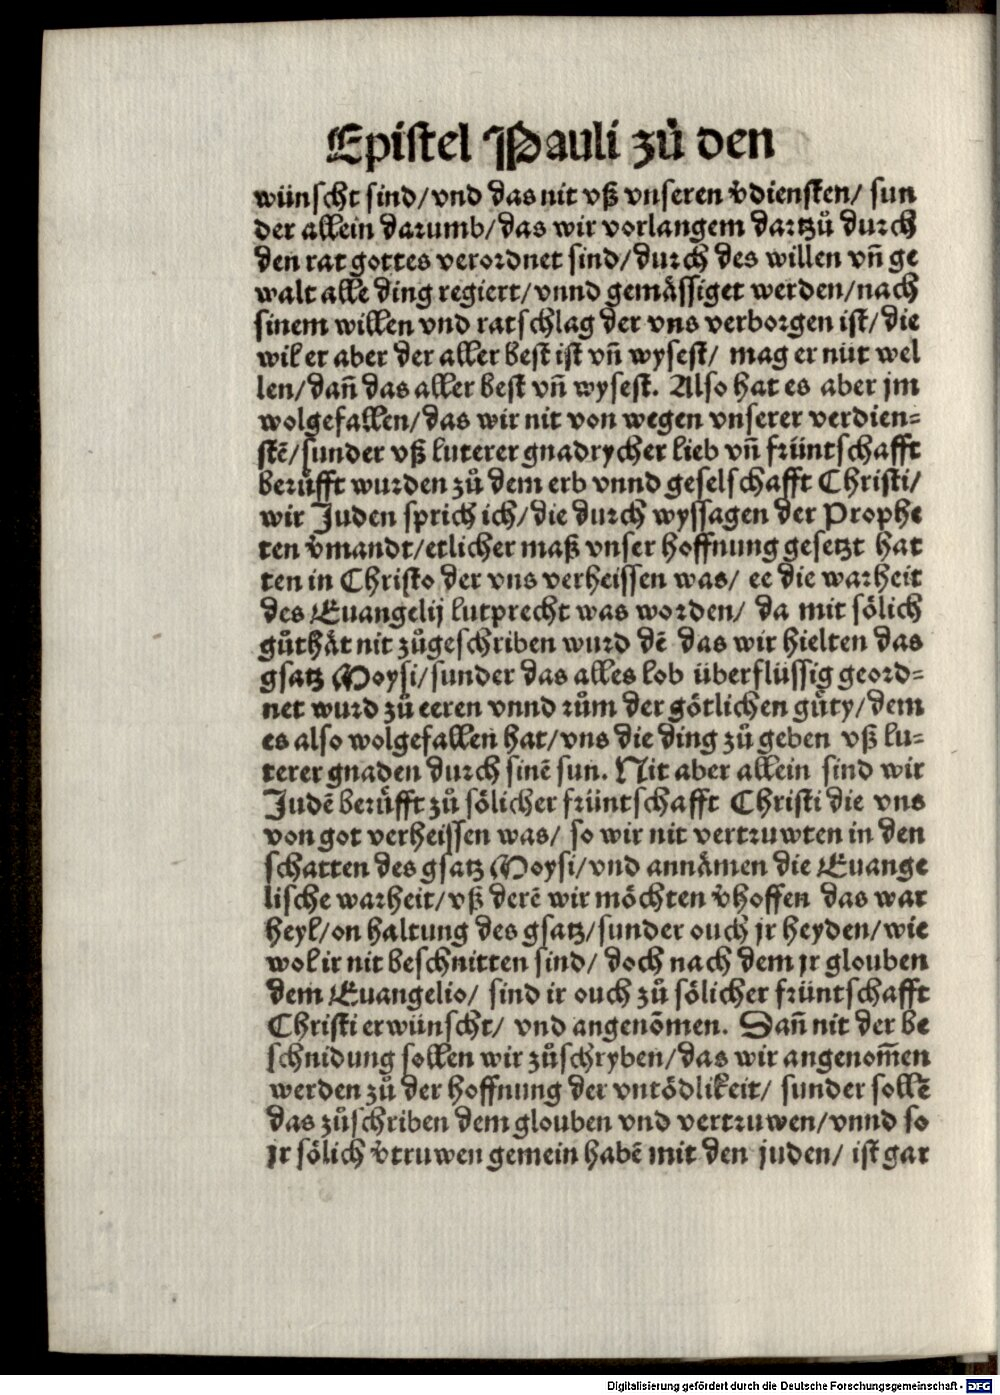 Epistel Pauli zů den
wünscht sind/vnd das nit vß vnseren v̄diensten/ sun
der allein darumb/das wir vorlangem dartzů durch
den rat gottes verordnet sind/durch des willen vñ ge
walt alle ding regiert/vnnd gemässiget werden/nach
sinem willen vnd ratschlag der vns verborgen ist/die
wil er aber der aller best ist vñ wysest/ mag er nüt wel
len/dañ das aller best vñ wysest. Also hat es aber jm
wolgefallen/das wir nit von wegen vnserer verdien=
stē/sunder vß luterer gnadrycher lieb vñ früntschafft
berůfft wurden zů dem erb vnnd geselschafft Christi/
wir Juden sprich ich/die durch wyssagen der Prophe
ten v̄mandt/etlicher maß vnser hoffnung gesetzt hat
ten in Christo der vns verheissen was/ ee die warheit
des Euangelij lutprecht was worden/ da mit sölich
gůthät nit zůgeschriben wurd dē das wir hielten das
gsatz Moysi/sunder das alles lob überflüssig geord=
net wurd zů eeren vnnd rům der götlichen gůty/dem
es also wolgefallen hat/vns die ding zů geben vß lu=
terer gnaden durch sinē sun. Nit aber allein sind wir
Judē berůfft zů sölicher früntschafft Christi die vns
von got verheissen was/ so wir nit vertruwten in den
schatten des gsatz Moysi/vnd annämen die Euange
lische warheit/vß derē wir möchten v̄hoffen das war
heyl/on haltung des gsatz/sunder ouch jr heyden/wie
wol ir nit beschnitten sind/ doch nach dem jr glouben
dem Euangelio/ sind ir ouch zů sölicher früntschafft
Christi erwünscht/ vnd angenōmen. Dañ nit der be
schnidung sollen wir zůschryben/das wir angenom̄en
werden zů der hoffnung der vntödlikeit/ sunder sollē
das zůschriben dem glouben vnd vertruwen/vnnd so
jr sölich v̄truwen gemein habē mit den juden/ ist gar
Digitalisierung gefördert durch die Deutsche Forschungsgemeinschaft - DFG